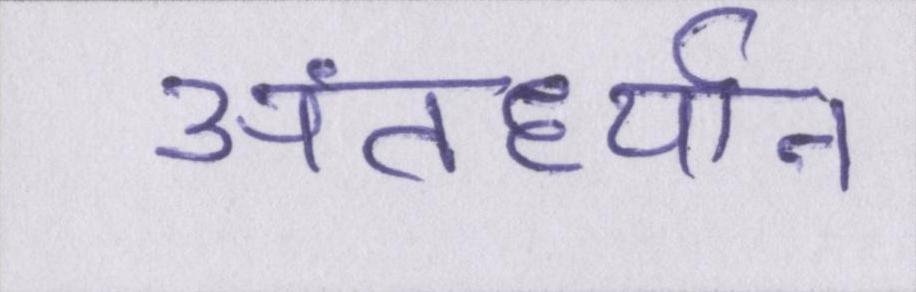 अंतर्ध्यान